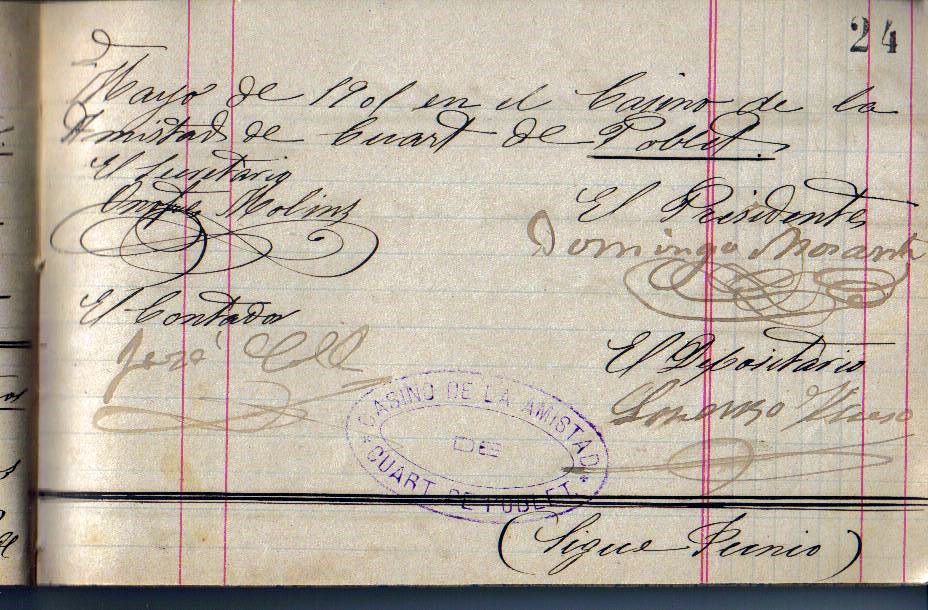 24
Mayo de 1901 en el Casino de la
Amistad de Cuart de Poblet.
El Secretario
Molins
El Presidente
Domingo Morant
El Contador
José Coll
El Depositario
Lorenzo
CASINO DE LA AMISTAD
DE
CUART DE POBLET
(Sigue Junio)